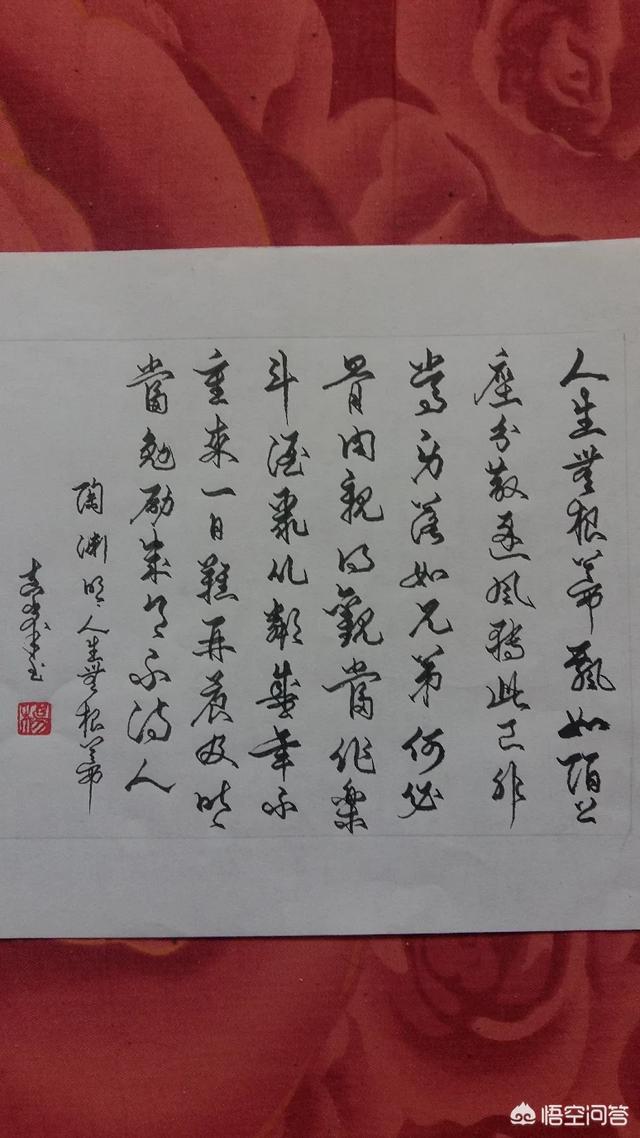 人生無根蒂飄如陌上
塵分散逐風轉此已非
常身落如兄弟何必
骨肉親得歡當作樂
斗酒聚比鄰盛年不
重來一日難再晨及時
當勉勵歲月不待人
陶渊明人生無根蒂
楊
悟空问答